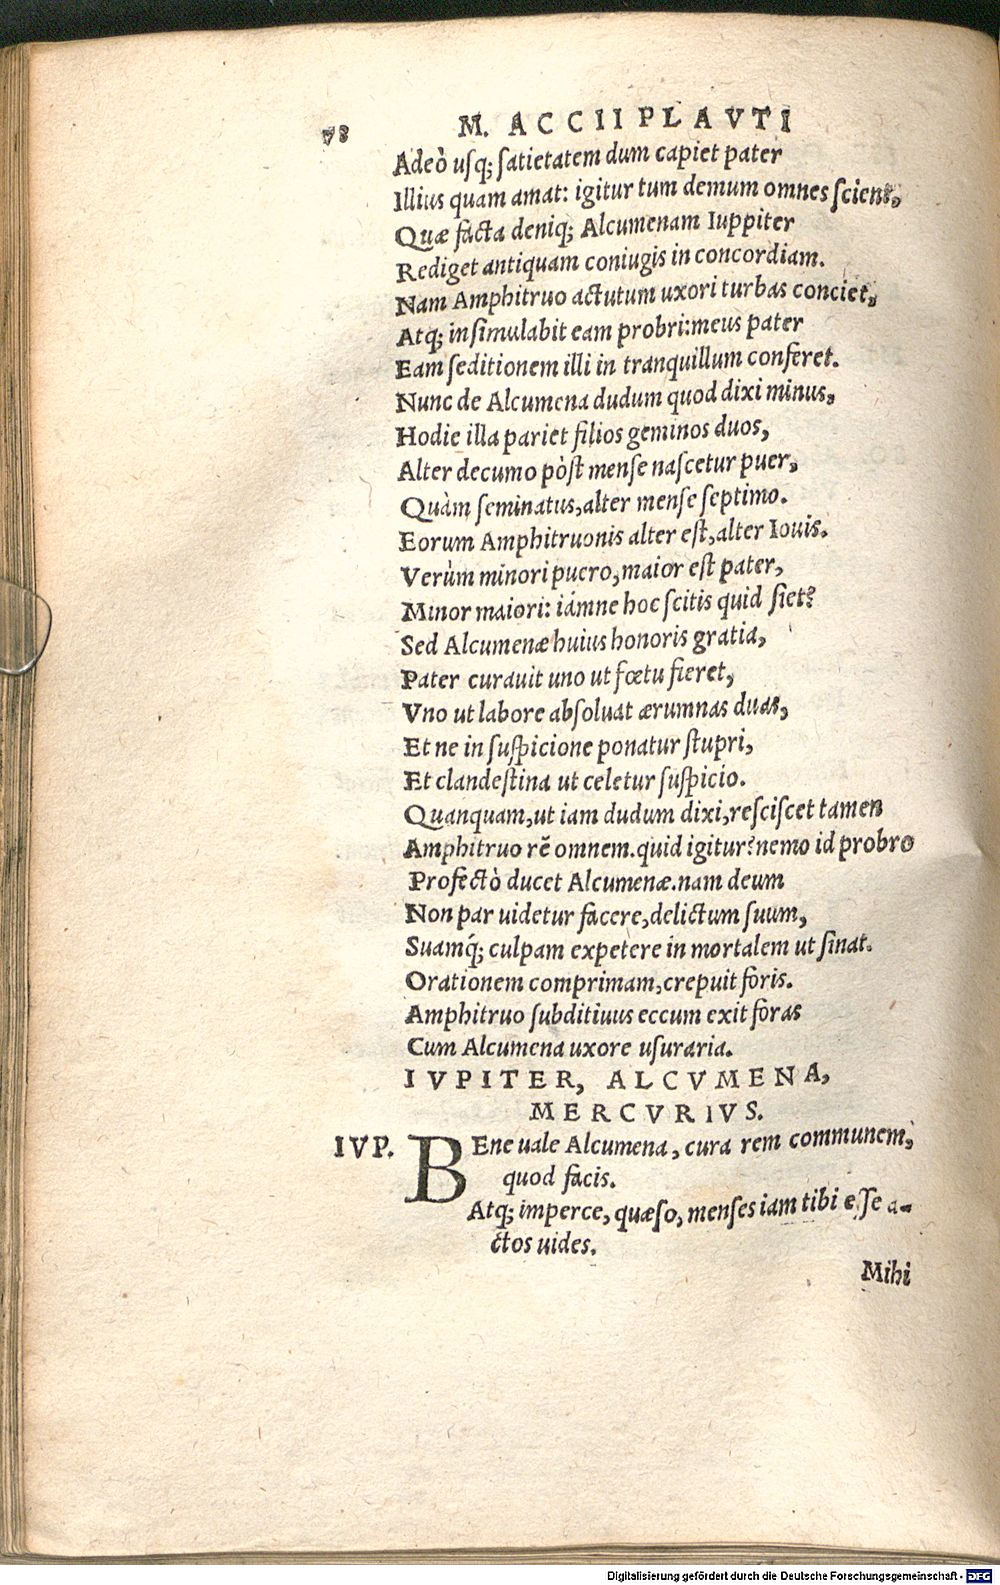 78 M. ACCII PLAVTI
Adeò uſq; ſatietatem dum capiet pater
Illius quam amat: igitur tum demum omnes ſcient,
Quæ facta deniq; Alcumenam Iuppiter
Rediget antiquam coniugis in concordiam.
Nam Amphitruo actutum uxori turbas conciet,
Atq; inſimulabit eam probri: meus pater
Eam ſeditionem illi in tranquillum conferet.
Nunc de Alcumena dudum quod dixi minus,
Hodie illa pariet filios geminos duos,
Alter decumo pòſt menſe naſcetur puer,
Quàm ſeminatus, alter menſe ſeptimo.
Eorum Amphitruonis alter eſt, alter Iouis.
Verùm minori puero, maior eſt pater,
Minor maiori: iámne hoc ſcitis quid ſiet?
Sed Alcumenæ huius honoris gratia,
Pater curauit uno ut fœtu fieret,
Vno ut labore abſoluat ærumnas duas,
Et ne in ſuſpicione ponatur ſtupri,
Et clandeſtina ut celetur ſuſpicio.
Quanquam, ut iam dudum dixi, reſciſcet tamen
Amphitruo rẽ omnem. quid igitur? nemo id probro
Profectò ducet Alcumenæ. nam deum
Non par uidetur facere, delictum ſuum,
Suamq́; culpam expetere in mortalem ut ſinat.
Orationem comprimam, crepuit foris.
Amphitruo ſubditiuus eccum exit foras
Cum Alcumena uxore uſuraria.
IVPITER, ALCVMENA,
MERCVRIVS.
IVP. BEne uale Alcumena, cura rem communem,
quod facis.
Atq; imperce, quæſo, menſes iam tibi eſſe a-
ctos uides.
Mihi
Digitalisierung gefördert durch die Deutsche Forschungsgemeinschaft - DFG